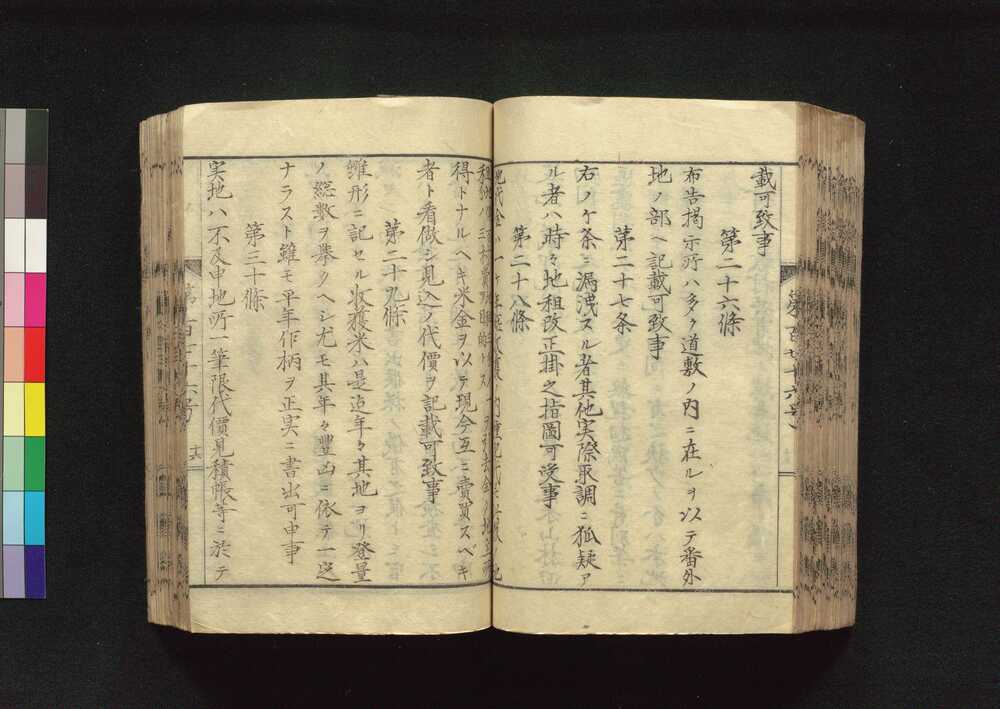 載可致事
第二十六條
布告掲示所ハ多ク道敷ノ内ニ在ルヲ以テ番外
地ノ部ヘ記載可致事
第二十七条
右ノケ条ニ漏洩スル者其他実際取調ニ狐疑ア
ル者ハ時々地租改正掛之指圖可受事
第二十八條
得トナルヘキ米金ヲ以テ現今互ニ賣買スベキ
者ト看做シ見込ノ代價ヲ記載可致事
第二十九條
雛形ニ記セル収獲米ハ是迄年々其地ヨリ登量
ノ総数ヲ挙クヘシ尤モ其年々豐凶ニ依テ一定
ナラスト雖モ平年作柄ヲ正実ニ書出可申事
第三十條
実地ハ不及申地所一筆限代價見積帳等ニ於テ